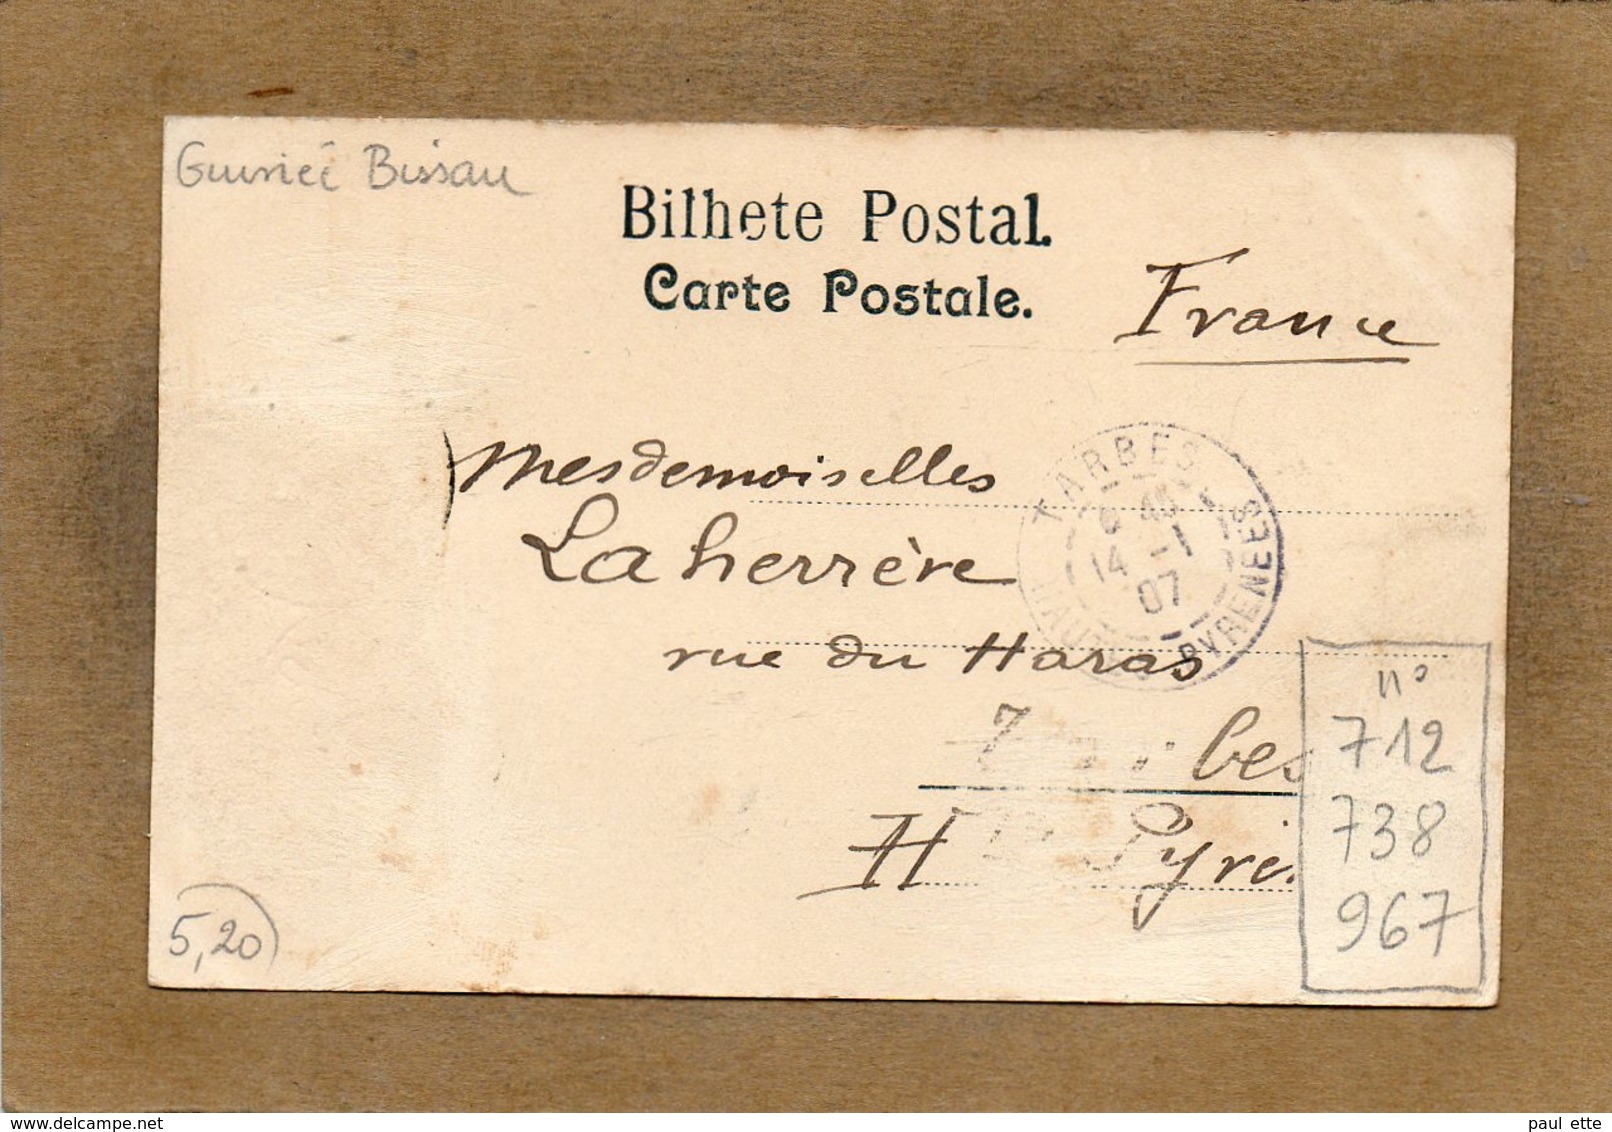 Guinée Bissau
Bilhete Postal.
Carte Postale.
France
Mesdemoiselles
Laherrère
rue du Haras
bes
H Pyré
TARBES
6 45
14 -1
07
HAUTES PYRENEES
n°
712
738
967
5,20
paul ette